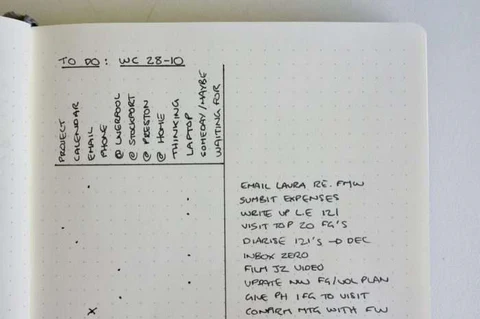 TO DO: WC 28-10
PROJECT
CALENDAR
EMAIL
PHONE
@ LIVERPOOL
@ STOCKPORT
@ PRESTON
@ HOME
THINKING
LAPTOP
SOMEDAY/MAYBE
WAITING FOR
EMAIL LAURA RE. FMW
SUMBIT EXPENSES
WRITE UP L.E 121
VISIT TOP 20 FG'S
DIARISE 121'S → DEC
INBOX ZERO
FILM JZ VIDEO
UPDATE NW FG/VOL PLAN
GIVE PH 1 FG TO VISIT
X CONFIRM MTG WITH FW